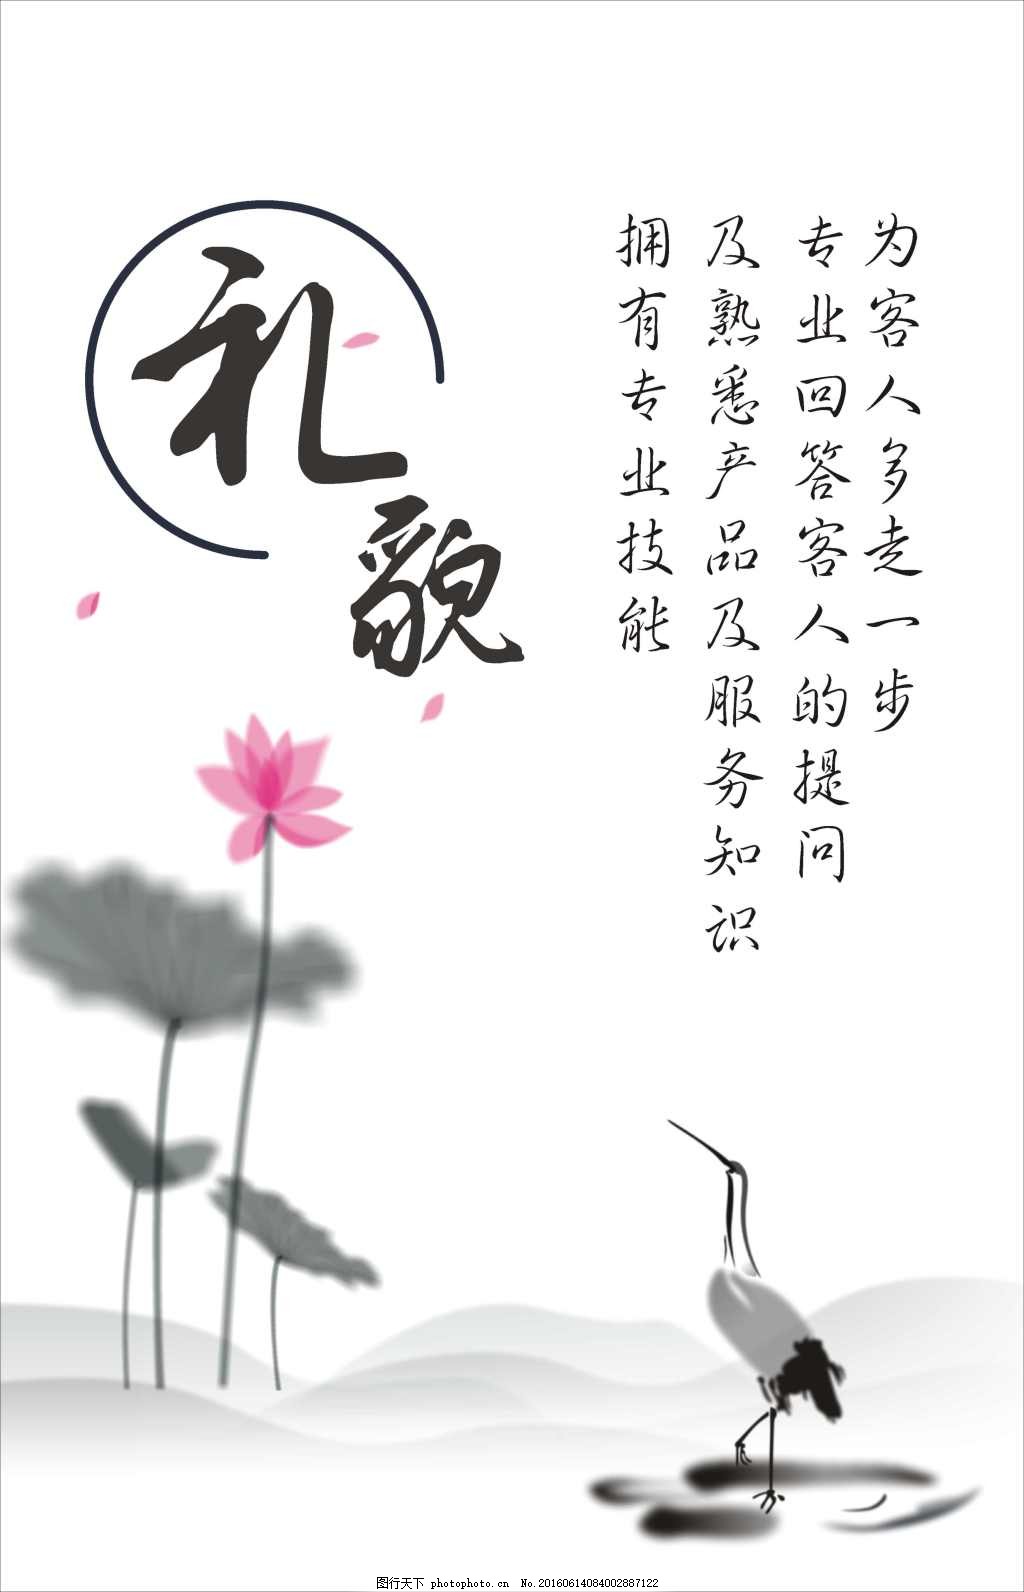 礼
貌
为客人多走一步
专业回答客人的提问
及熟悉产品及服务知识
拥有专业技能
图行天下 photophoto.cn No.20160614084002887122